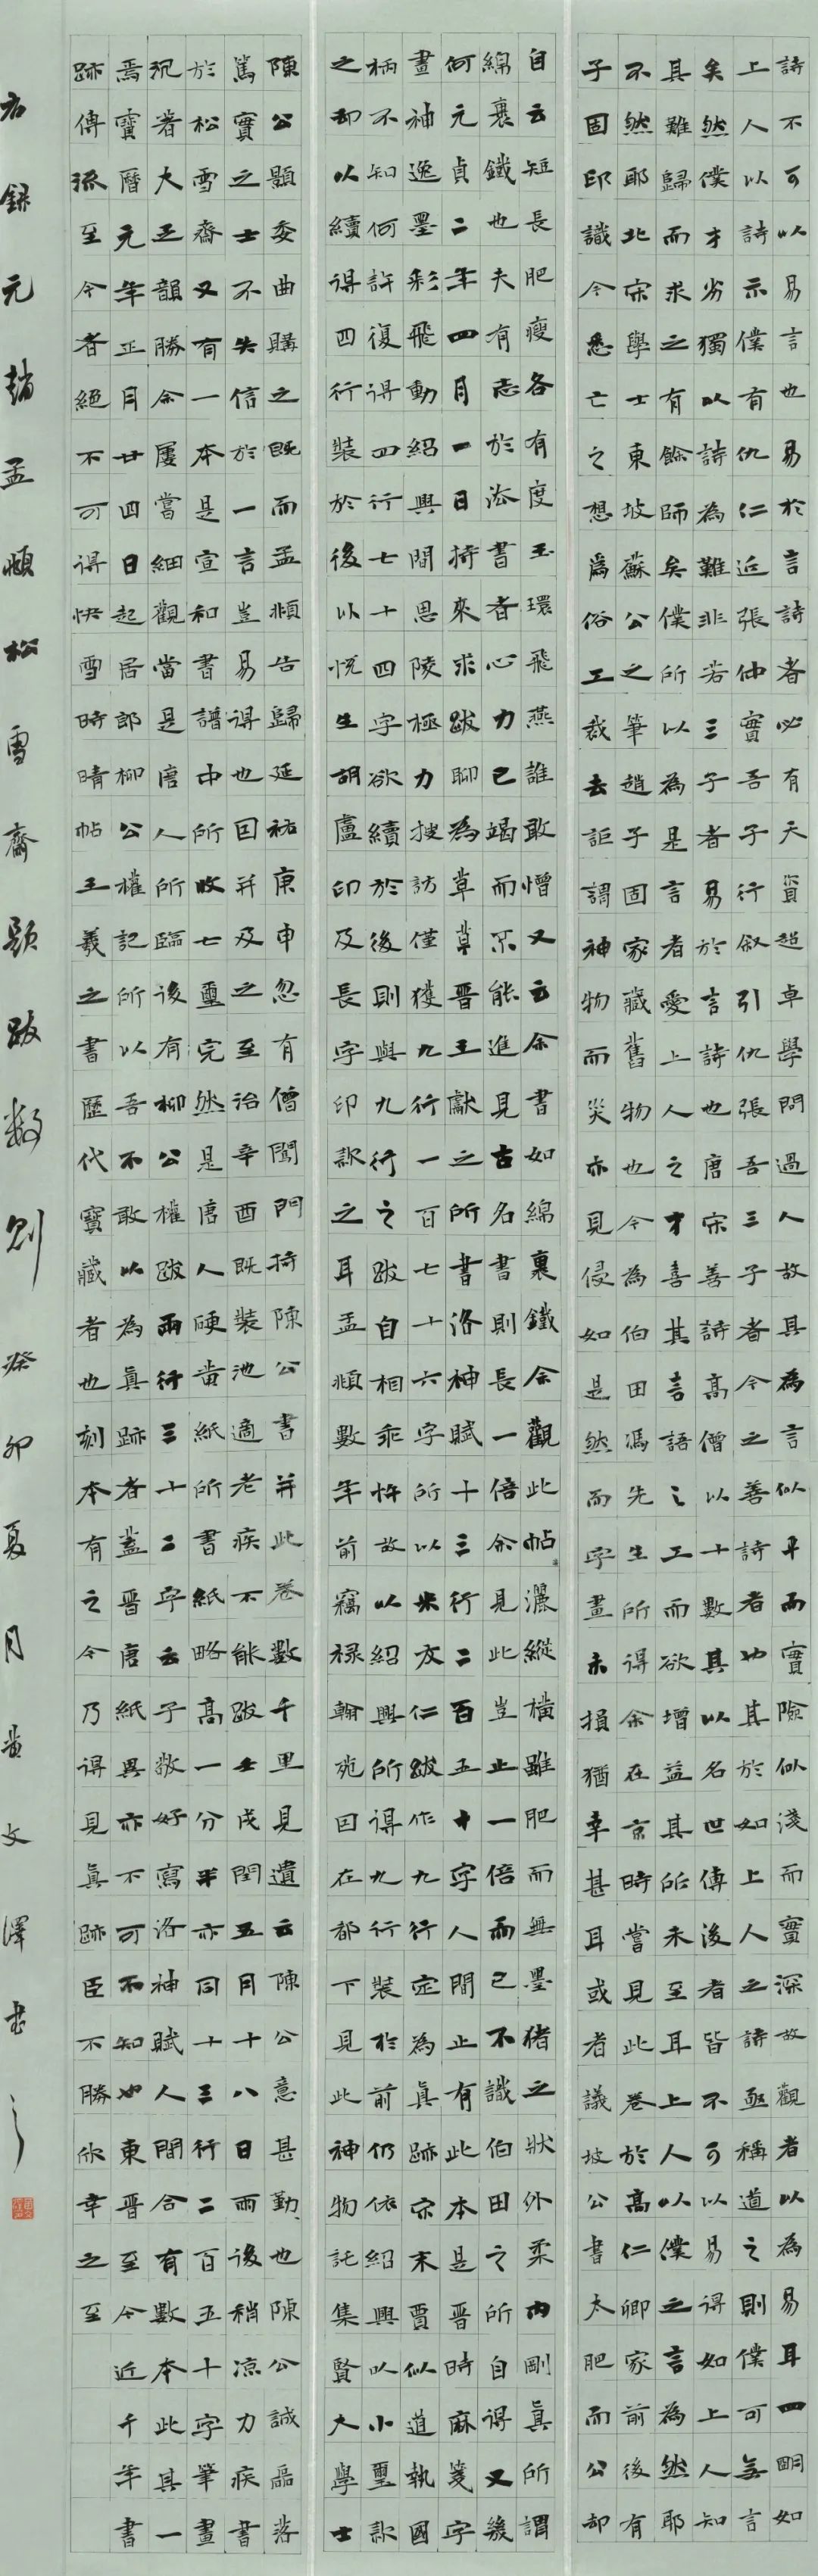 詩不可以易言也易於言詩者必有天資超卓學問過人故其為言似平而實險似淺而實深故觀者以為易耳一嗣如
上人以詩示僕有仇仁近張仲實吾子行敘引仇張吾三子者今之善詩者也其於如上人之詩亟稱道之則僕可無言
矣然僕才劣獨以詩為難非若三子者易於言詩也唐宋善詩高僧以十數其以名世傳後者皆不可以易得如上人知
其難歸而求之有餘師矣僕所以為是言者愛上人之才喜其言語之工而欲增益其所未至耳上人以僕之言為然耶
不然耶北宋學士東坡蘇公之筆趙子固家藏舊物也今為伯田馮先生所得余在京時嘗見此卷於高仁卿家前後有
子固印識今悉亡之想為俗工裁去詎謂神物而災亦見侵如是然而字畫未損猶幸甚耳或者議坡公書太肥而公却
自云短長肥瘦各有度玉環飛燕誰敢憎又云余書如綿裹鐵余觀此帖瀟縱橫雖肥而無墨猪之狀外柔內剛真所謂
綿裹鐵也夫有志於法書者心力已竭而不能進見古名書則長一倍余見此豈止一倍而已不識伯田之所自得又幾
何元貞二年四月一日持來求跋聊為草草晉王獻之所書洛神賦十三行二百五十字人間止有此本是晉時麻箋字
畫神逸墨彩飛動紹興間思陵極力搜訪僅獲九行一百七十六字所以米友仁跋作九行定為真跡宋末賈似道執國
柄不知何許復得四行七十四字欲續於後則與九行之跋自相乖忤故以紹興所得九行裝於前仍依紹興以小璽款
之却以續得四行裝於後以悅生胡盧印及長字印款之耳孟頫數年前竊祿翰苑因在都下見此神物託集賢大學士
陳公顥委曲購之既而孟頫告歸延祐庚申忽有僧闖門持陳公書并此卷數千里見遺云陳公意甚勤也陳公誠磊落
篤實之士不失信於一言豈易得也因并及之至治辛酉既裝池適老疾不能跋壬戌閏五月十八日雨後稍涼力疾書
於松雪齋又有一本是宣和書譜中所收七璽完然是唐人硬黃紙所書紙略高一分半亦同十三行二百五十字筆畫
沉著大乏韻勝余屢嘗細觀當是唐人所臨後有柳公權跋兩行三十二字云子敬好寫洛神賦人間合有數本此其一
焉寶曆元年正月廿四日起居郎柳公權記所以吾不敢以為真跡者蓋晉唐紙異亦不可不知也東晉至今近千年書
跡傳流至今者絕不可得快雪時晴帖王羲之書歷代寶藏者也刻本有之今乃得見真跡臣不勝欣幸之至
右錄元趙孟頫松雪齋題跋數則癸卯夏月黃文澤書之